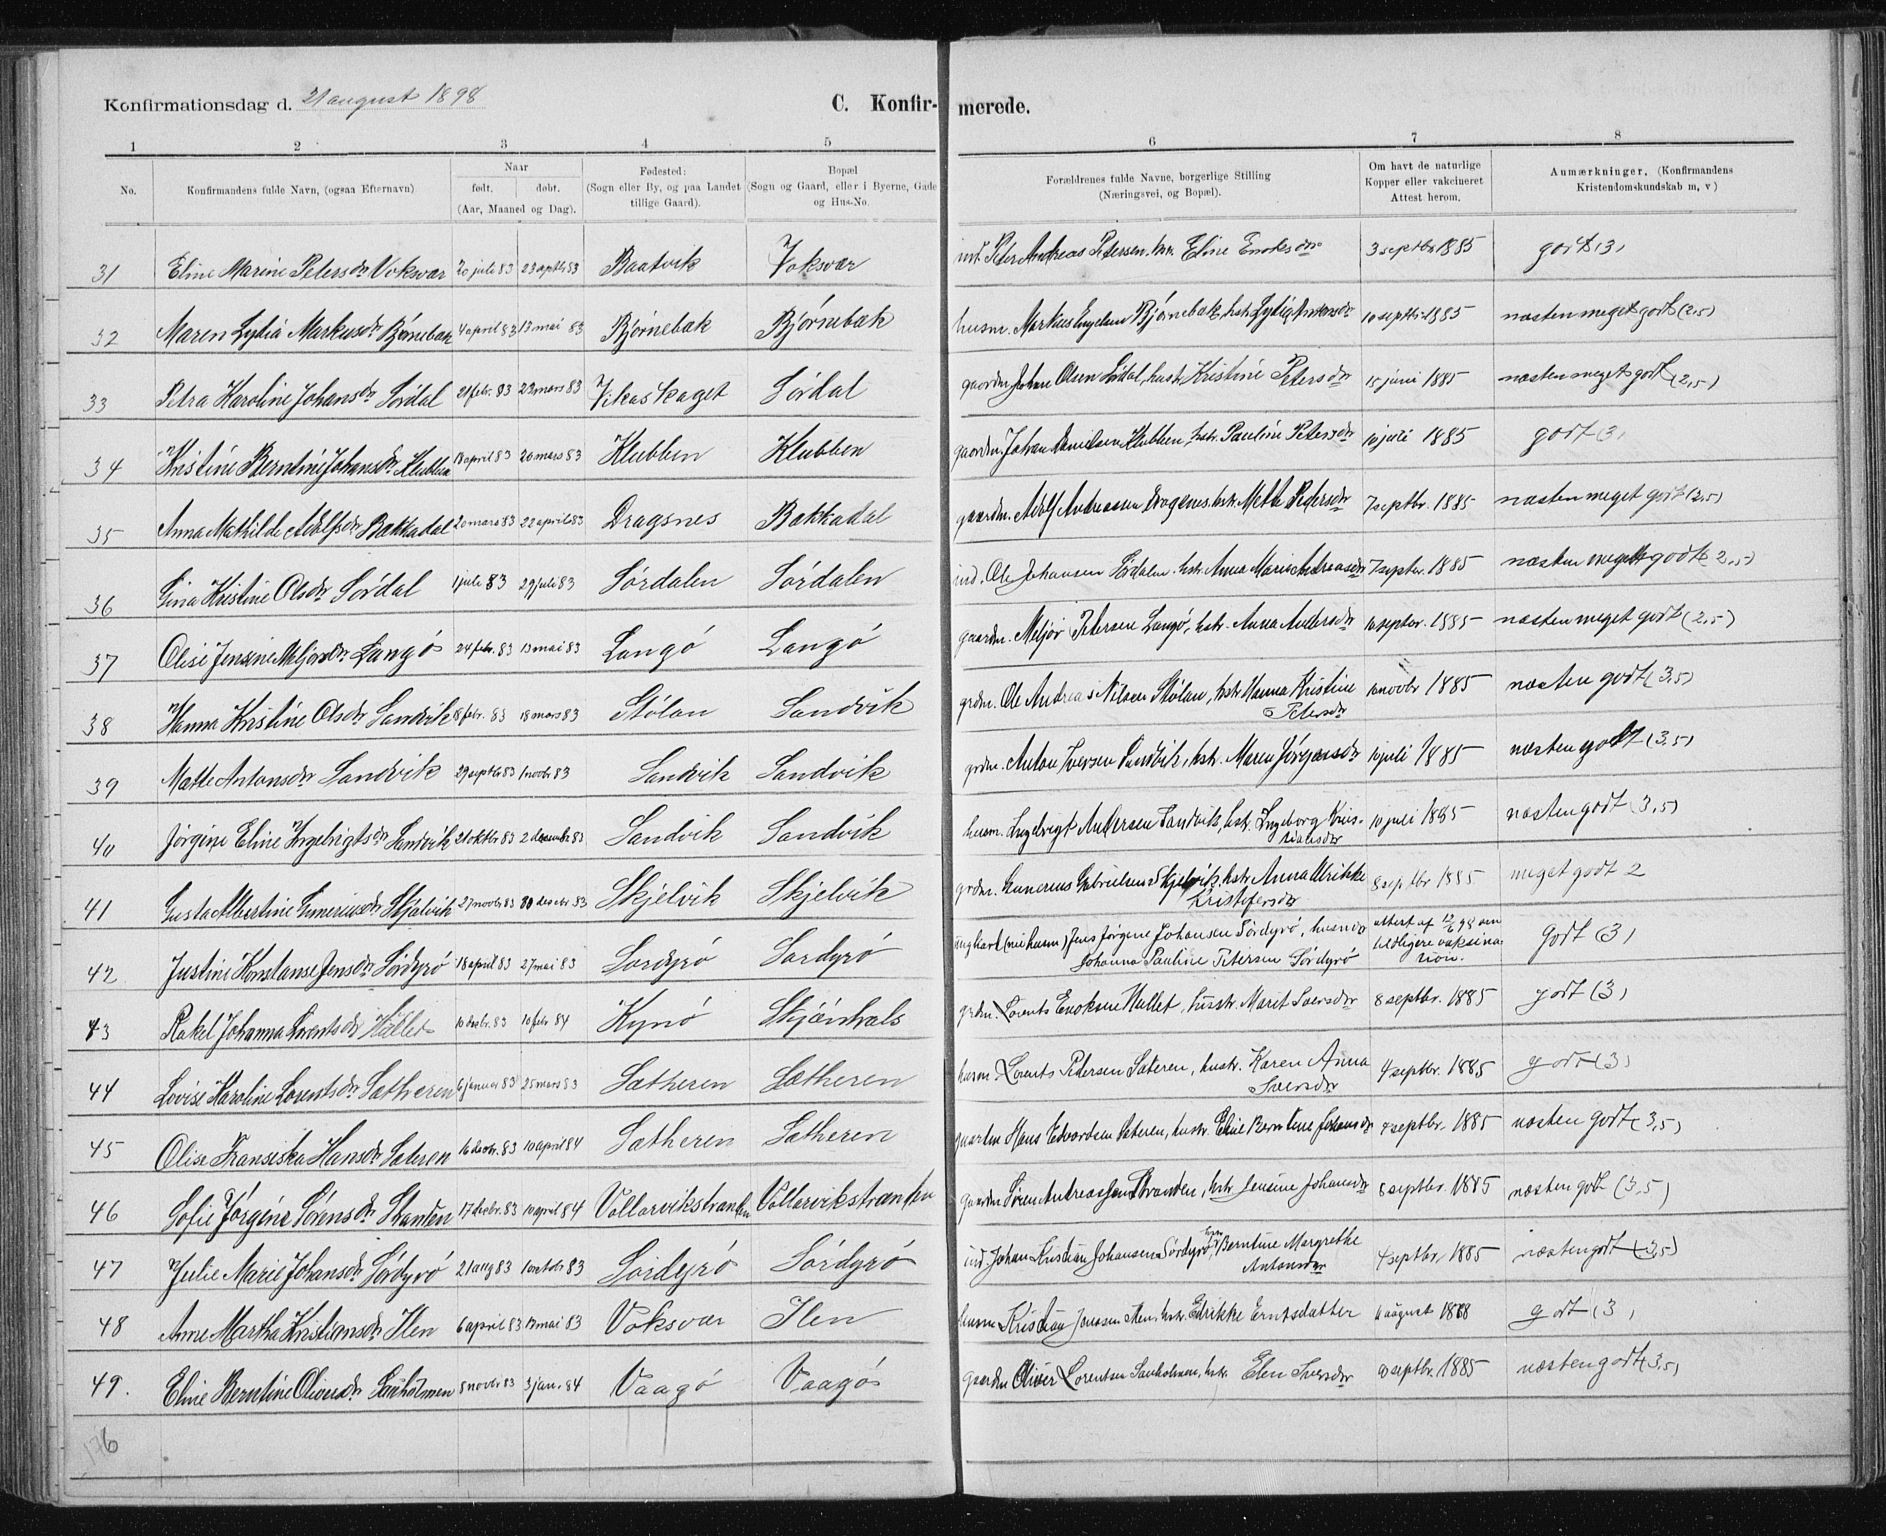 Konfirmationsdag d. 21 august 1898
C. Konfir- merede.
1 2 3 4 5 6 7 8
No. Konfirmandens fulde Navn, (ogsaa Efternavn) Naar født. døbt. (Aar, Maaned og Dag). Fødested: (Sogn eller By, og paa Landet tillige Gaard). Bopæl (Sogn og Gaard, eller i Byerne, Gade og Hus-No. Forældrenes fulde Navne, borgerlige Stilling (Næringsvei, og Bopæl). Om havt de naturlige Kopper eller vakcineret Attest herom. Anmærkninger, (Konfirmandens Kristendomskundskab m, v)
31 Eline Marine Petersdr Voksvær 20 juli 83 23 septb 83 Baatvik Voksvær ind. Peter Andreas Petersen, Eline Enoksdr 3 septbr 1885 godt (3)
32 Maren Lydia Markusdr Bjørnebæk 4 april 83 13 mai 83 Bjørnebæk Bjørnebæk husm. Markus Bjørnebæk, hstr. 10 septbr 1885 næsten meget godt (2,5)
33 Petra Karoline Johansdr Sørdal 21 febr. 83 23 mars 83 Vikaskaget Sørdal gaardm. Johan Olsen Sørdal, hustr. Kristine Petersdr 15 juni 1885 næsten meget godt (2,5)
34 Kristine Berntine Johansdr Klubben april 83 20 mars 83 Klubben Klubben gaardm. Johan Klubben, hstr. Pauline Petersdr 10 juli 1885 godt (3)
35 Anna Mathilde Adolfsdr Bakkadal 20 mars 83 22 april 83 Dragsnes Bakkadal gaardm. Adolf Andreassen Dragsnes, hstr. Mette Petersdr 7 septbr. 1885 næsten meget godt (2,5)
36 Gina Kristine Olsdr Sørdal 1 juli 83 29 juli 83 Sørdalen Sørdalen ind. Ole Johansen Sørdalen, hstr. Anna Marie Andreasdr 7 septbr. 1885 næsten meget godt (2,5)
37 Olise Jensine Meljorsdr Langø 24 febr. 83 13 mai 83 Langø Langø gaardm. Meljør Petersen Langø, hstr. Anna Andersdr 10 septbr. 1885 næsten meget godt (2,5)
38 Hanna Kristine Olsdr Sandvik 8 febr. 83 18 mars 83 Stølan Sandvik grdm. Ole Andreas Nilsen Stølan, hstr. Hanna Kristine
Petersdr 10 novbr 1885 næsten godt (3,5)
39 Mette Antonsdr Sandvik 29 septb 83 1 novb 83 Sandvik Sandvik grdm. Anton Iversen Sandvik, hstr. Maren Jørgensdr 10 juli 1885 næsten godt (3,5)
40 Jørgine Eline Ingebrigtsdr Sandvik 21 oktbr 83 2 desember 83 Sandvik Sandvik husm. Andersen Sandvik, hstr. Ingeborg Kris-
tiansdr 10 juli 1885 næsten godt (3,5)
41 Gusta Albertine Guneriusdr Skjelvik 27 novb 83 desbr 83 Skjelvik Skjelvik grdm. Gunerius Gabrielsen Skjelvik, hstr. Anna Ulrikke
Kristofersdr 8 septbr 1885 meget godt 2
42 Justine Konstanse Jensdr Sørdyrø 18 april 83 27 mai 83 Sørdyrø Sørdyrø (nu husm) Jens Jørgine Johansen Sørdyrø,
Johanna Pauline Petersen Sørdyrø attest af 12/6 98 om tidligere vaksina-
tion. Godt (3)
43 Rakel Johanna Lorentsdr Hallet 10 desbr. 83 10 febr 84 Kynø Skjønhals grdm. Lorents Enoksen Hallet, husstr. Marit Iversdr 8 septbr. 1885 godt (3)
44 Lovise Karoline Lorentsdr Sætheren 6 januar 83 25 mars 83 Sætheren Sætheren husm. Lorents Petersen Sæteren, hustr. Karen Anna
Iversdr 4 septbr. 1885 godt (3)
45 Olise Fransiska Hansdr Sæteren 16 desbr. 83 10 april 84 Sætheren Sætheren gaardm. Hans Edvardsen Sæteren, hustr. Eline Berntine Johansdr septbr. 1885 næsten godt (3,5)
46 Sofie Jørgine Sørensdr Stranden 17 desbr. 83 10 april 84 Vollarvikstranden Vollarvikstranden gaardm. Søren Andreassen Stranden, hstr. Jensine Johansdr 8 septbr. 1885 næsten godt (3,5)
47 Julie Marie Johansdr Sørdyrø 21 aug 83 1 oktbr 83 Sørdyrø Sørdyrø ind. Johan Kristian Johansen Sørdyrø, Berntine Margrethe
Antonsdr 4 septbr, 1885 næsten godt (3,5)
48 Anne Martha Kristiansdr Ilen 6 april 83 13 mai 83 Voksvær Ilen husm Kristian Jonassen Ilen, hstr. Edrikke Erntsdatter august 1888 godt (3)
49. Eline Berntine Oliversdr Sauholmen 8 novbr 83 3 jan. 84 Vaagø Vaagø gaardm Oliver Lorentsen Sauholmen, hstr. Elen Iversdr septbr. 1885 næsten godt (3,5)
176